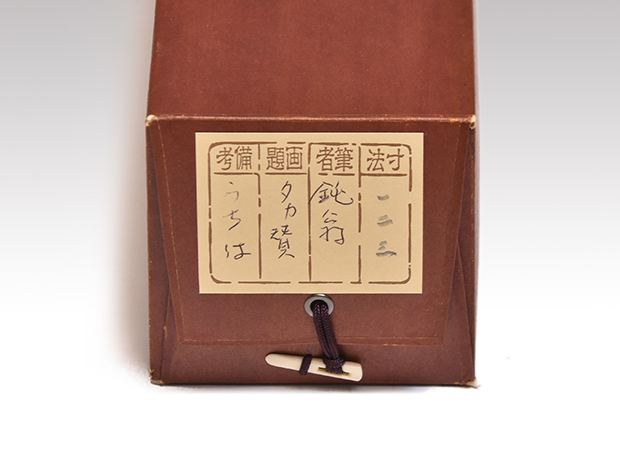 寸法
一二三
筆者
鈍翁
画題
夕カ賛
備考
うちは